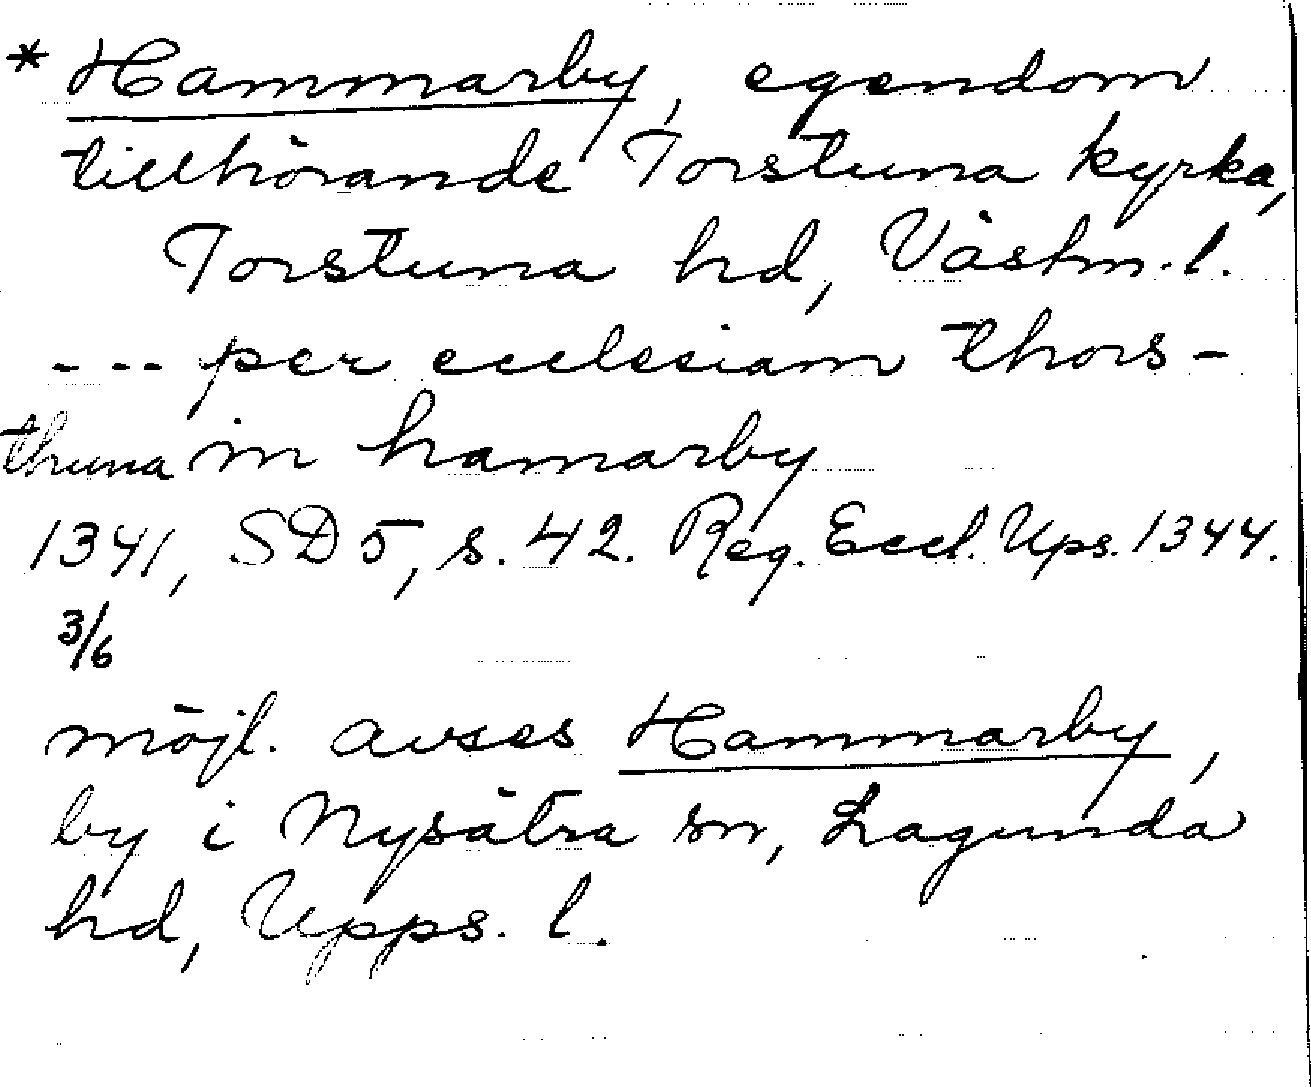 * Hammarby, egendom
tillhörande Torstuna kyrka,
Torstuna hd, Västm. l.
--- per ecclesiam thors-
thuna in hamarby
1341, SD 5, s. 42. Reg. Eccl. Ups. 1344.
3/6
möjl. avses Hammarby,
by i Nysätra sn, Lagunda
hd, Upps. l.